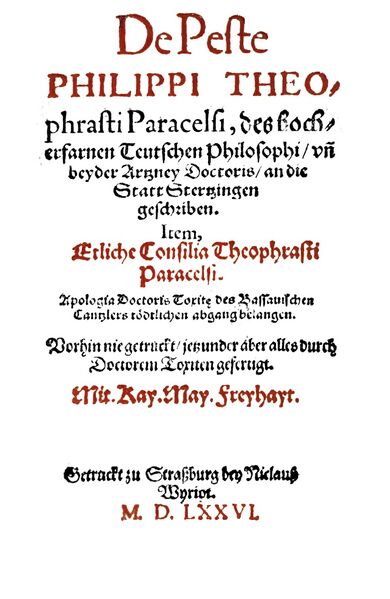 De Peste
PHILIPPI THEO,
phrasti Paracelsi, des hoch-
erfarnen Teutschen Philosophi / vñ
beyder Artzney Doctoris / an die
Statt Stertzingen
geschriben.
Item,
Etliche Consilia Theophrasti
Paracelsi.
Apologia Doctoris Toxitę des Bassauischen
Cantzlers tödtlichen abgang belangen.
Vorhin nie getruckt / jetzunder aber alles durch
Doctorem Toxiten gefertigt.
Mit. Kay. May. Freyhayt.
Getruckt zu Straßburg bey Niclauß
Wyriot.
M. D. LXXVI.